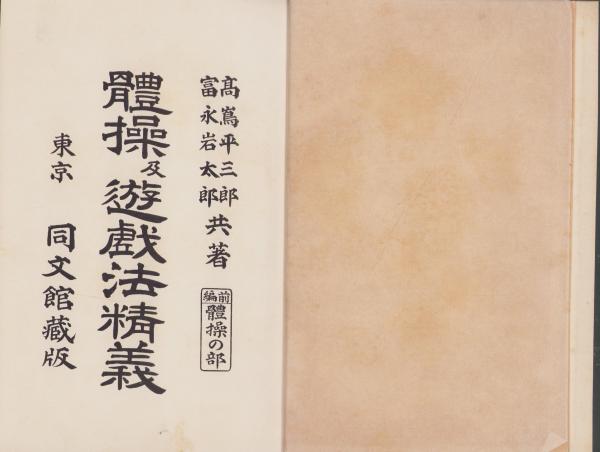 髙嶌平三郎
富永岩太郎
共著
前編
體操の部
體操及遊戲法精義
東京 同文館藏版